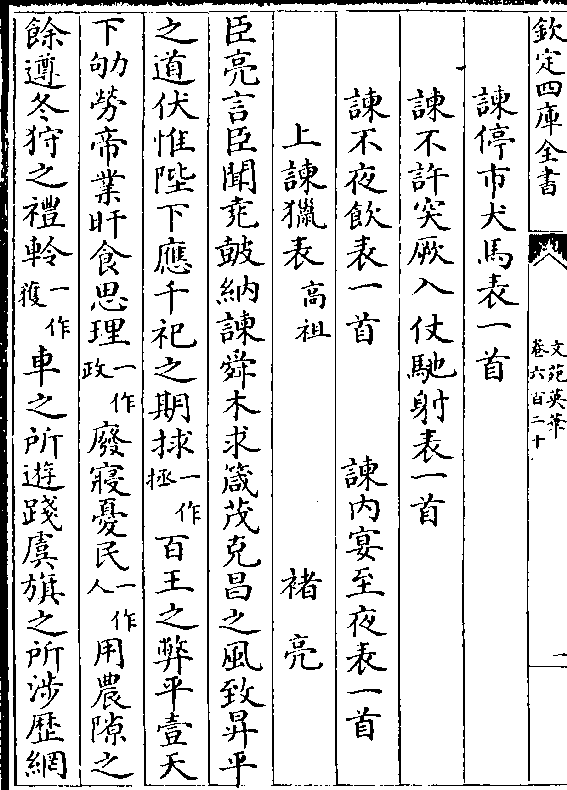 欽定四庫全書
文苑英華
卷六百二十
一
諫停市犬馬表一首
諫不許突厥入仗馳射表一首
諫不夜飲表一首 諫内宴至夜表一首
上諫獵表高祖 褚亮
臣亮言臣聞堯鼓納諫舜木求箴茂克昌之風致昇平
之道伏惟陛下應千祀之期捄一作拯百王之弊平壹天
下劬勞帝業旰食思理一作政廢寢憂民一作人用農隙之
餘遵冬狩之禮軨一作獲車之所遊踐虞旗之所涉歷網